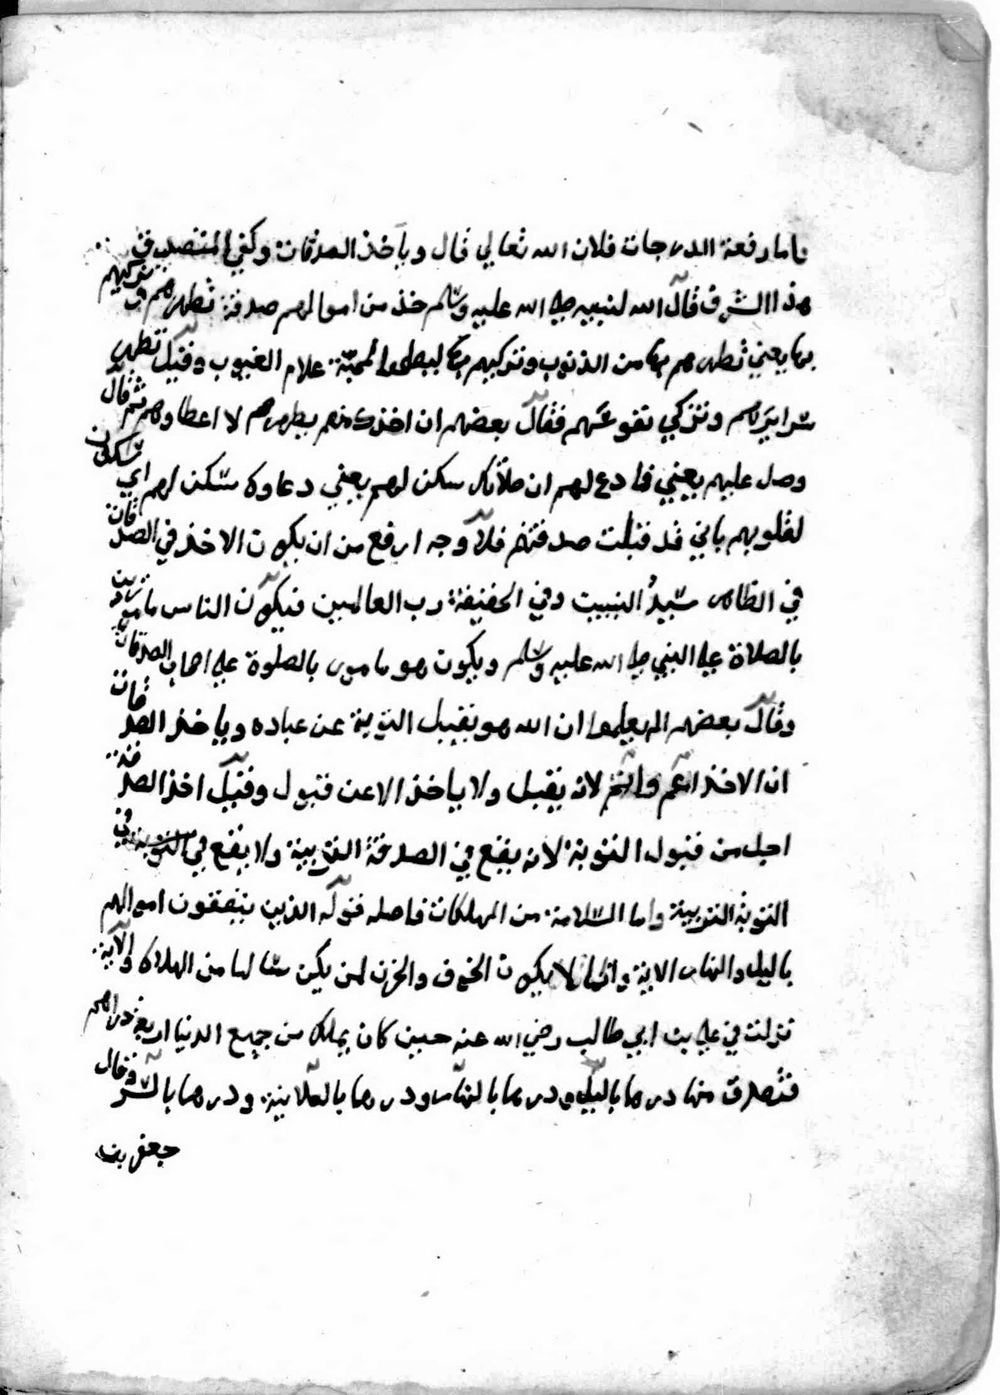 فاما رفعة الدرجات فلان الله تعالي قال وياخذ الصدقات وكفي المتصدق في
هذا الشرف قال الله لنبيه صلي الله عليه وسلم خذ من اموالهم صدقة تطهرهم وتزكيهم
بها يعني تطهرهم بها من الذنوب وتزكيهم بها علام الغيوب وقيل تطهر
سرايرهم وتزكي نفوسهم فقال بعضهم ان اخذك منهم يطهرهم لا اعطاوهم ثم قال
وصل عليهم يعني فادع لهم ان صلاتك سكن لهم يعني دعاوك سكن لهم اي سكون
لقلوبهم باني قد قبلت صدقتهم فلا وجه ارفع من ان يكون الاخذ في الصدقات
في الظاهر سيد النبيين وفي الحقيقة رب العالمين فيكون الناس مامورين
بالصلاة علي النبي صلي الله عليه وسلم ويكون هو مامور بالصلوة علي اصحاب الصدقات
وقال بعضهم الم يعلموا ان الله هو يقبل التوبة عن عباده وياخذ الصدقات
ان الاخذ اعم واتم لانه يقبل ولا ياخذ الا عن قبول وقيل اخذ الصدقة
اجل من قبول التوبة لانه يقع في الصدقة التربية ولا يقع في
التوبة التربية واما السلامة من المهلكات فاصله قوله الذين ينفقون اموالهم
بالليل والنهار الاية وانما لا يكون الخوف والحزن لمن يكون سالما من الهلاك والاية
نزلت في علي بن ابي طالب رضي الله عنه حين كان يملك من جميع الدنيا اربع دراهم
فتصدق منها درهما بالليل ودرهما بالنهار ودرهما بالعلانية ودرهما بالسر وقال
جعفر بن